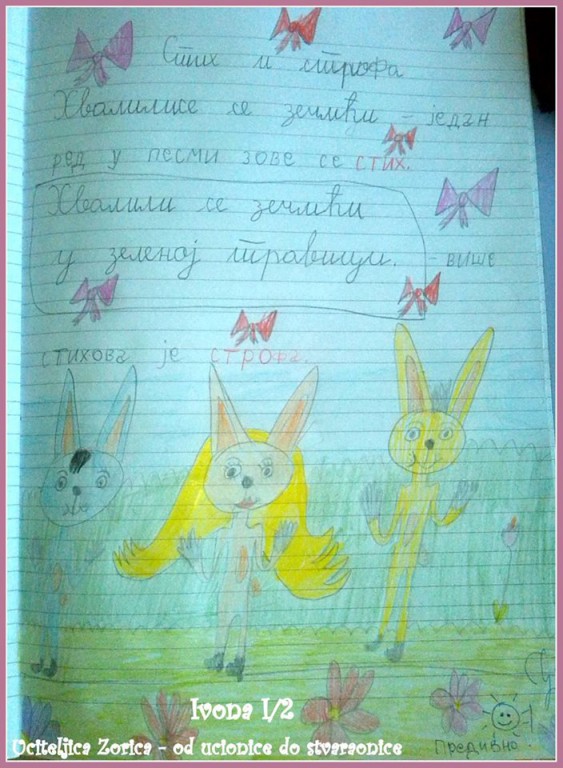 Стих и строфа
Хвалилисе се зечићи – један
ред у песми зове се стих.
Хвалили се зечићи
у зеленој травици. – више
стихова је строфа.
Ivona I/2
Uciteljica Zorica - od ucionice do stvaraonice
Предивно!